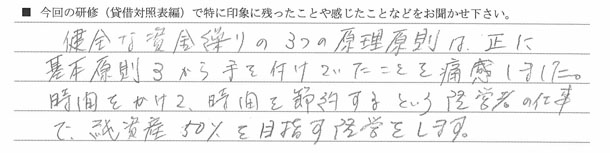 ■ 今回の研修(貸借対照表編)で特に印象に残ったことや感じたことなどをお聞かせ下さい。
健全な資金繰りの3つの原理原則は、正に
基本原則3から手を付けていたことを痛感しました。
時間をかけて、時間を節約するという経営者の仕事
で、純資産50%を目指す経営をします。